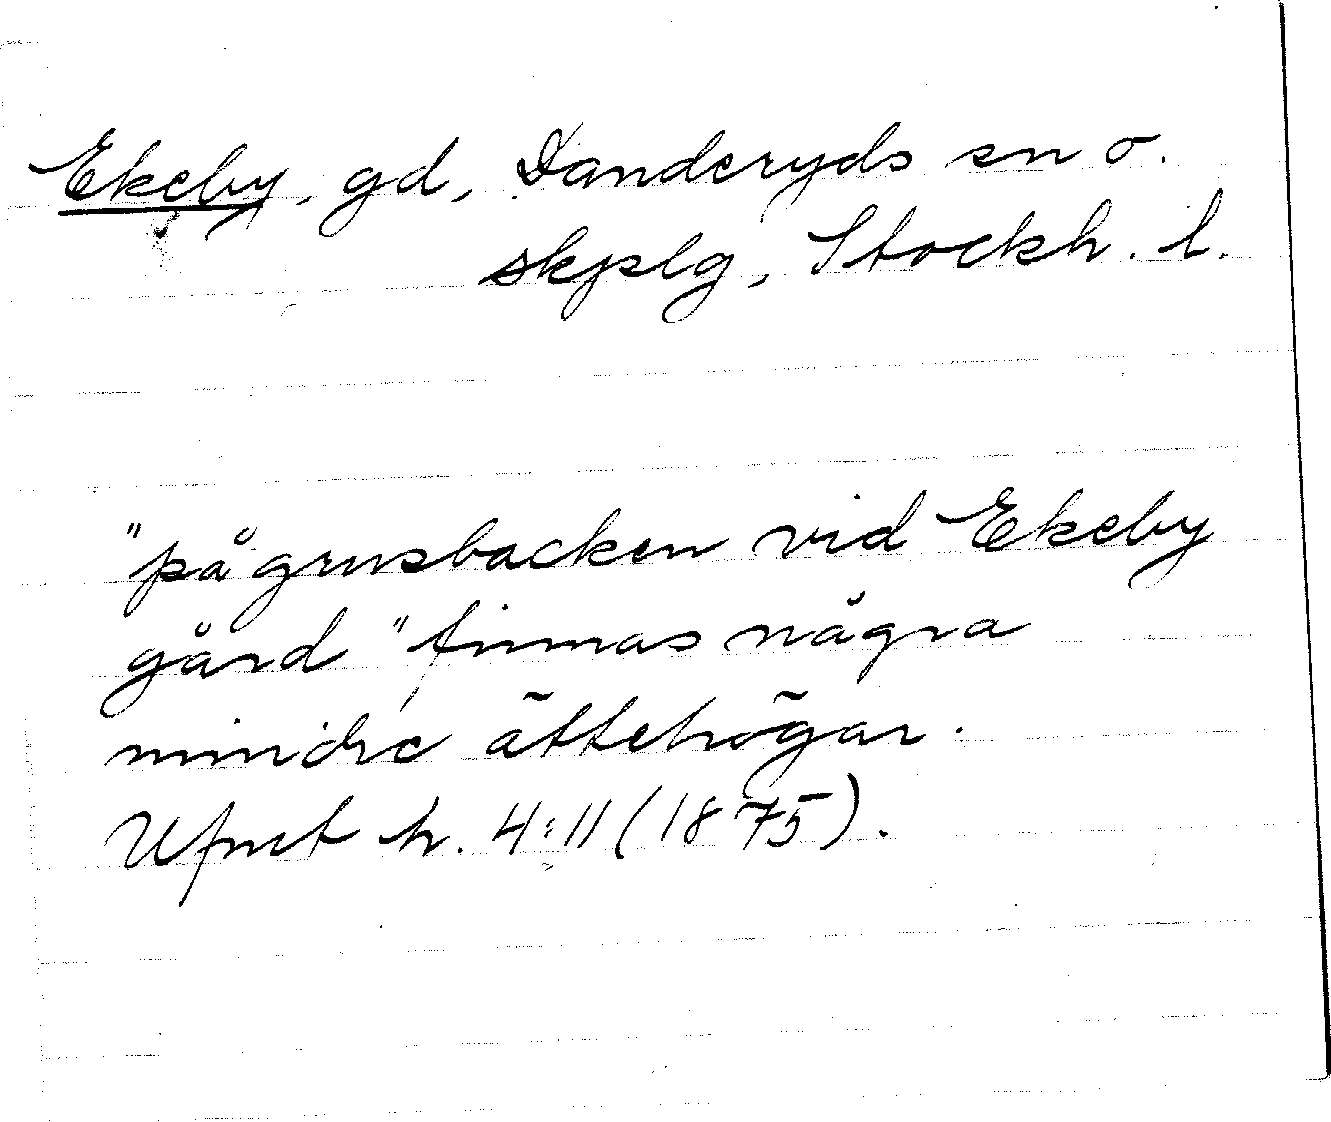 Ekeby, gd, Danderyds sn o.
skplg, Stockh. l.
"på grusbacken vid Ekeby
gård" finnas några
mindre ättehögar.
Ufmt h. 4:11 (1875).